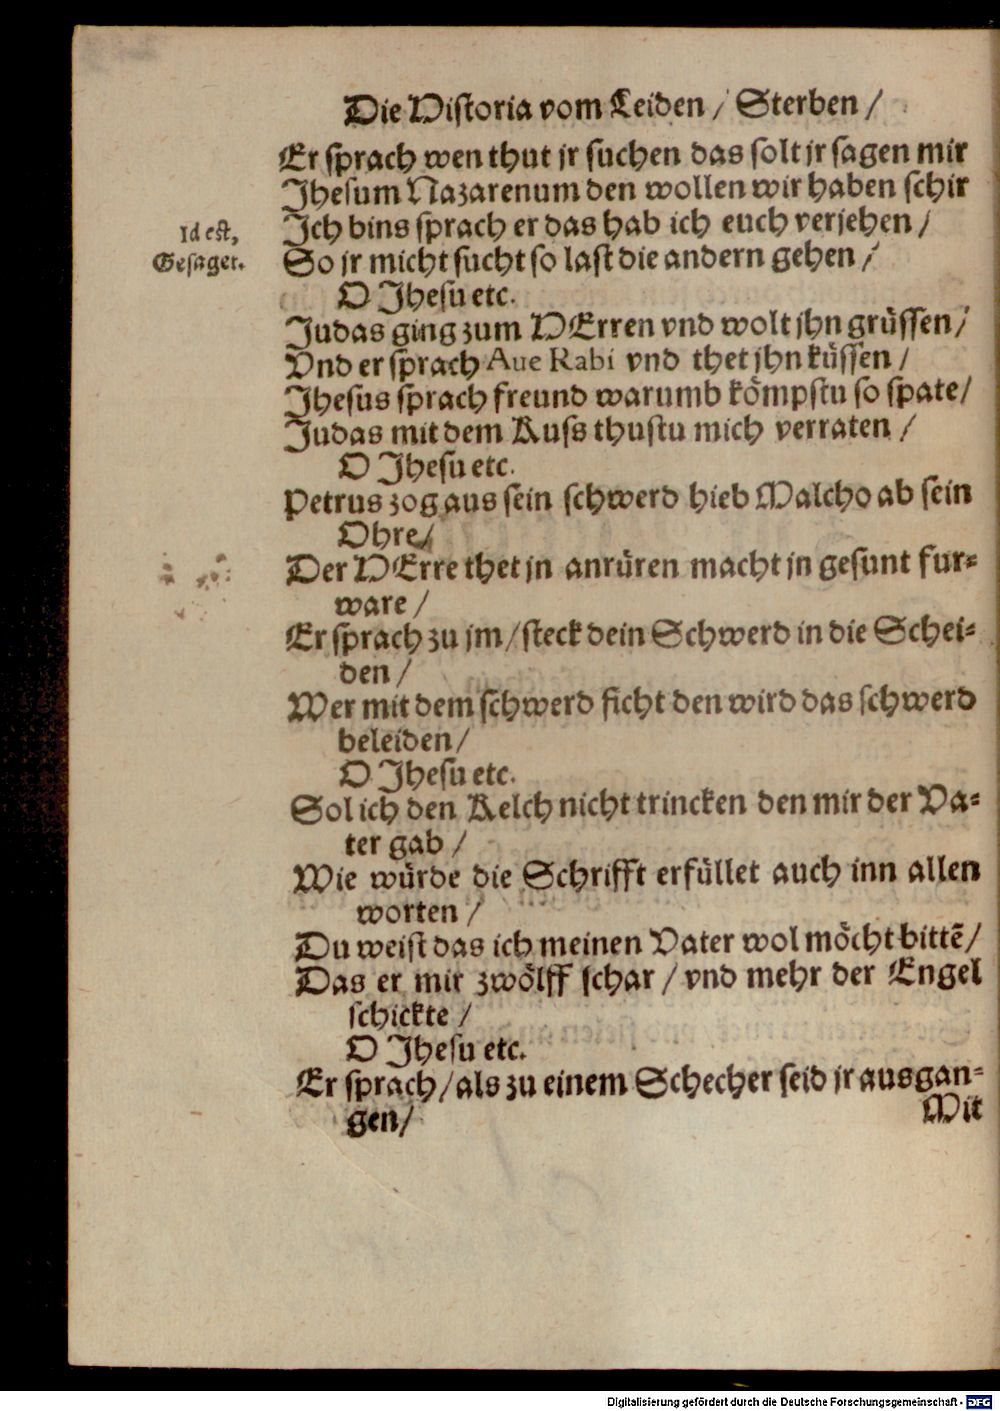 Die Historia vom Leiden / Sterben /
Er sprach wen thut jr suchen das solt jr sagen mir
Jhesum Nazarenum den wollen wir haben schir
Id est,
Gesaget.
Ich bins sprach er das hab ich euch verjehen /
So jr micht sucht so last die andern gehen /
O Jhesu etc.
Judas ging zum HErren vnd wolt jhn grüssen /
Vnd er sprach Aue Rabi vnd thet jhn küssen /
Jhesus sprach freund warumb kömpstu so spate /
Judas mit dem Kuss thustu mich verraten /
O Jhesu etc.
Petrus zog aus sein schwerd hieb Malcho ab sein
Ohre /
Der HErre thet jn anrüren macht jn gesunt fur-
ware /
Er sprach zu jm / steck dein Schwerd in die Schei-
den /
Wer mit dem schwerd ficht den wird das schwerd
beleiden /
O Jhesu etc.
Sol ich den Kelch nicht trincken den mir der Va-
ter gab /
Wie würde die Schrifft erfüllet auch inn allen
worten /
Du weist das ich meinen Vater wol möcht bittē /
Das er mir zwölff schar / vnd mehr der Engel
schickte /
O Jhesu etc.
Er sprach / als zu einem Schecher seid jr ausgan-
gen /
Mit
Digitalisierung gefördert durch die Deutsche Forschungsgemeinschaft - DFG